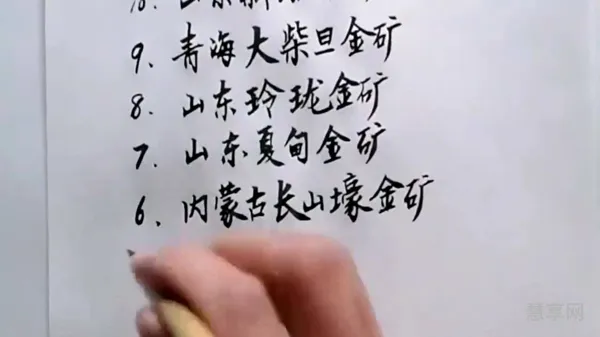 9. 青海大柴旦金矿
8. 山东玲珑金矿
7. 山东夏甸金矿
6. 内蒙古长山壕金矿